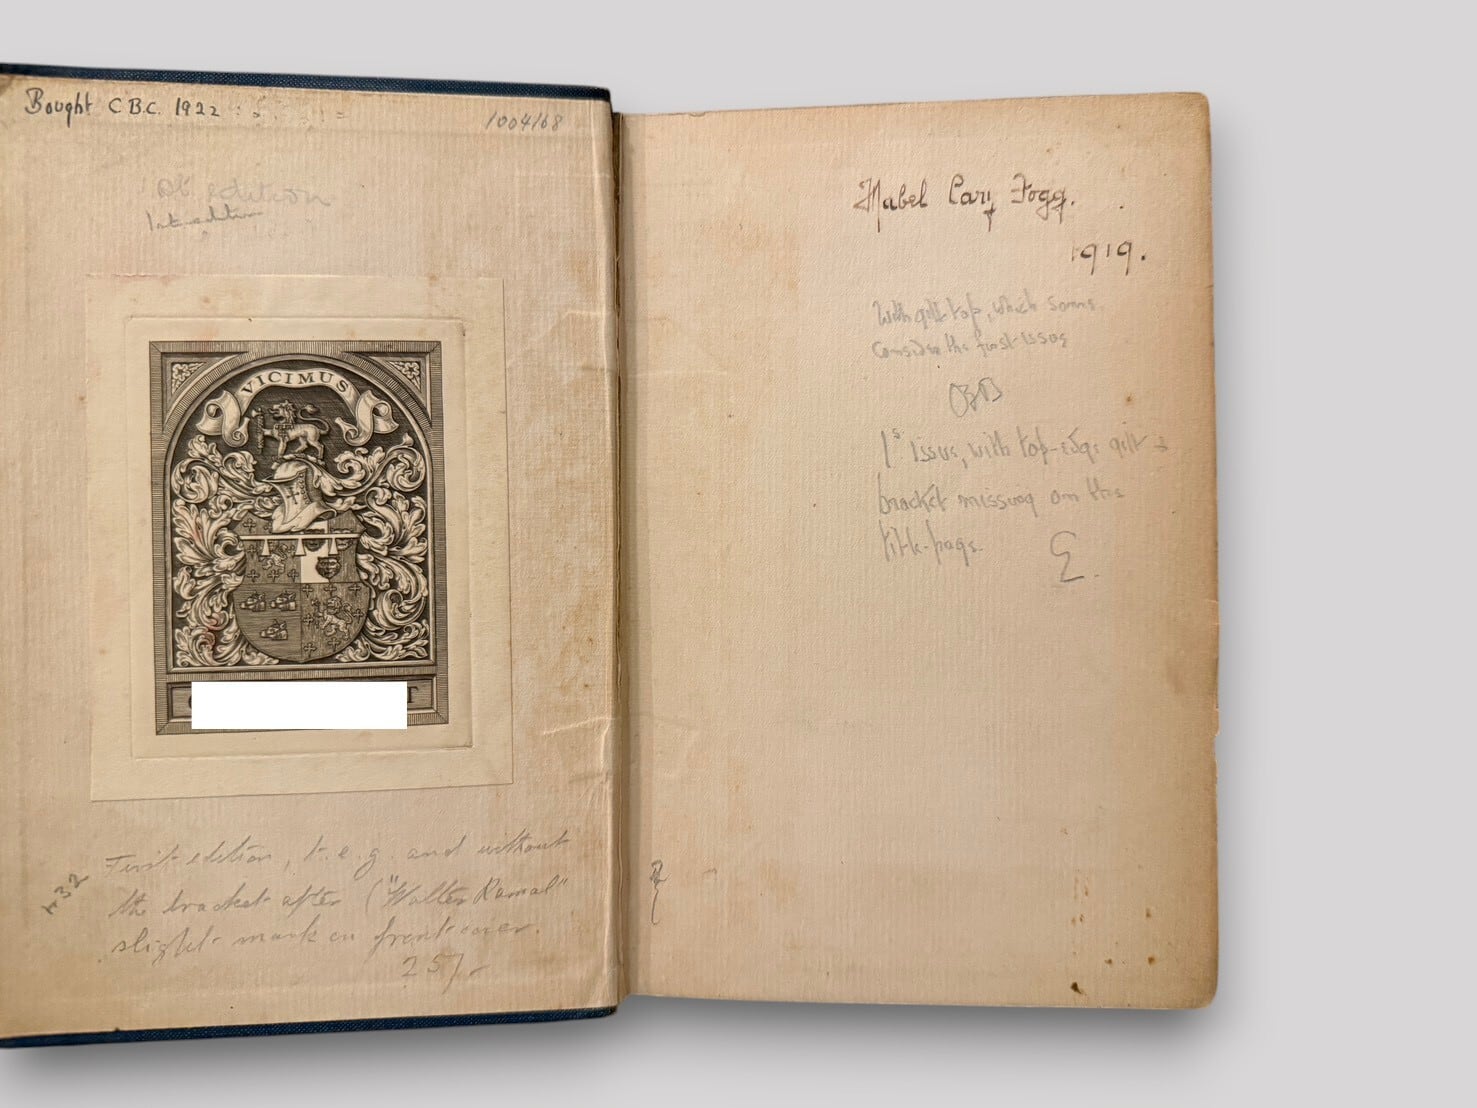 Bought C.B.C. 1922
1004168
1st edition
1st edition
VICIMUS
T
First edition, t.e.g. and without
the bracket after ("Walter Ramal"
slight mark on front cover.
25/-
Mabel Cary Fogg.
1919.
With gilt top, which some
consider the first issue
1s issue, with top-edge gilt &
bracket missing on the
title-page.